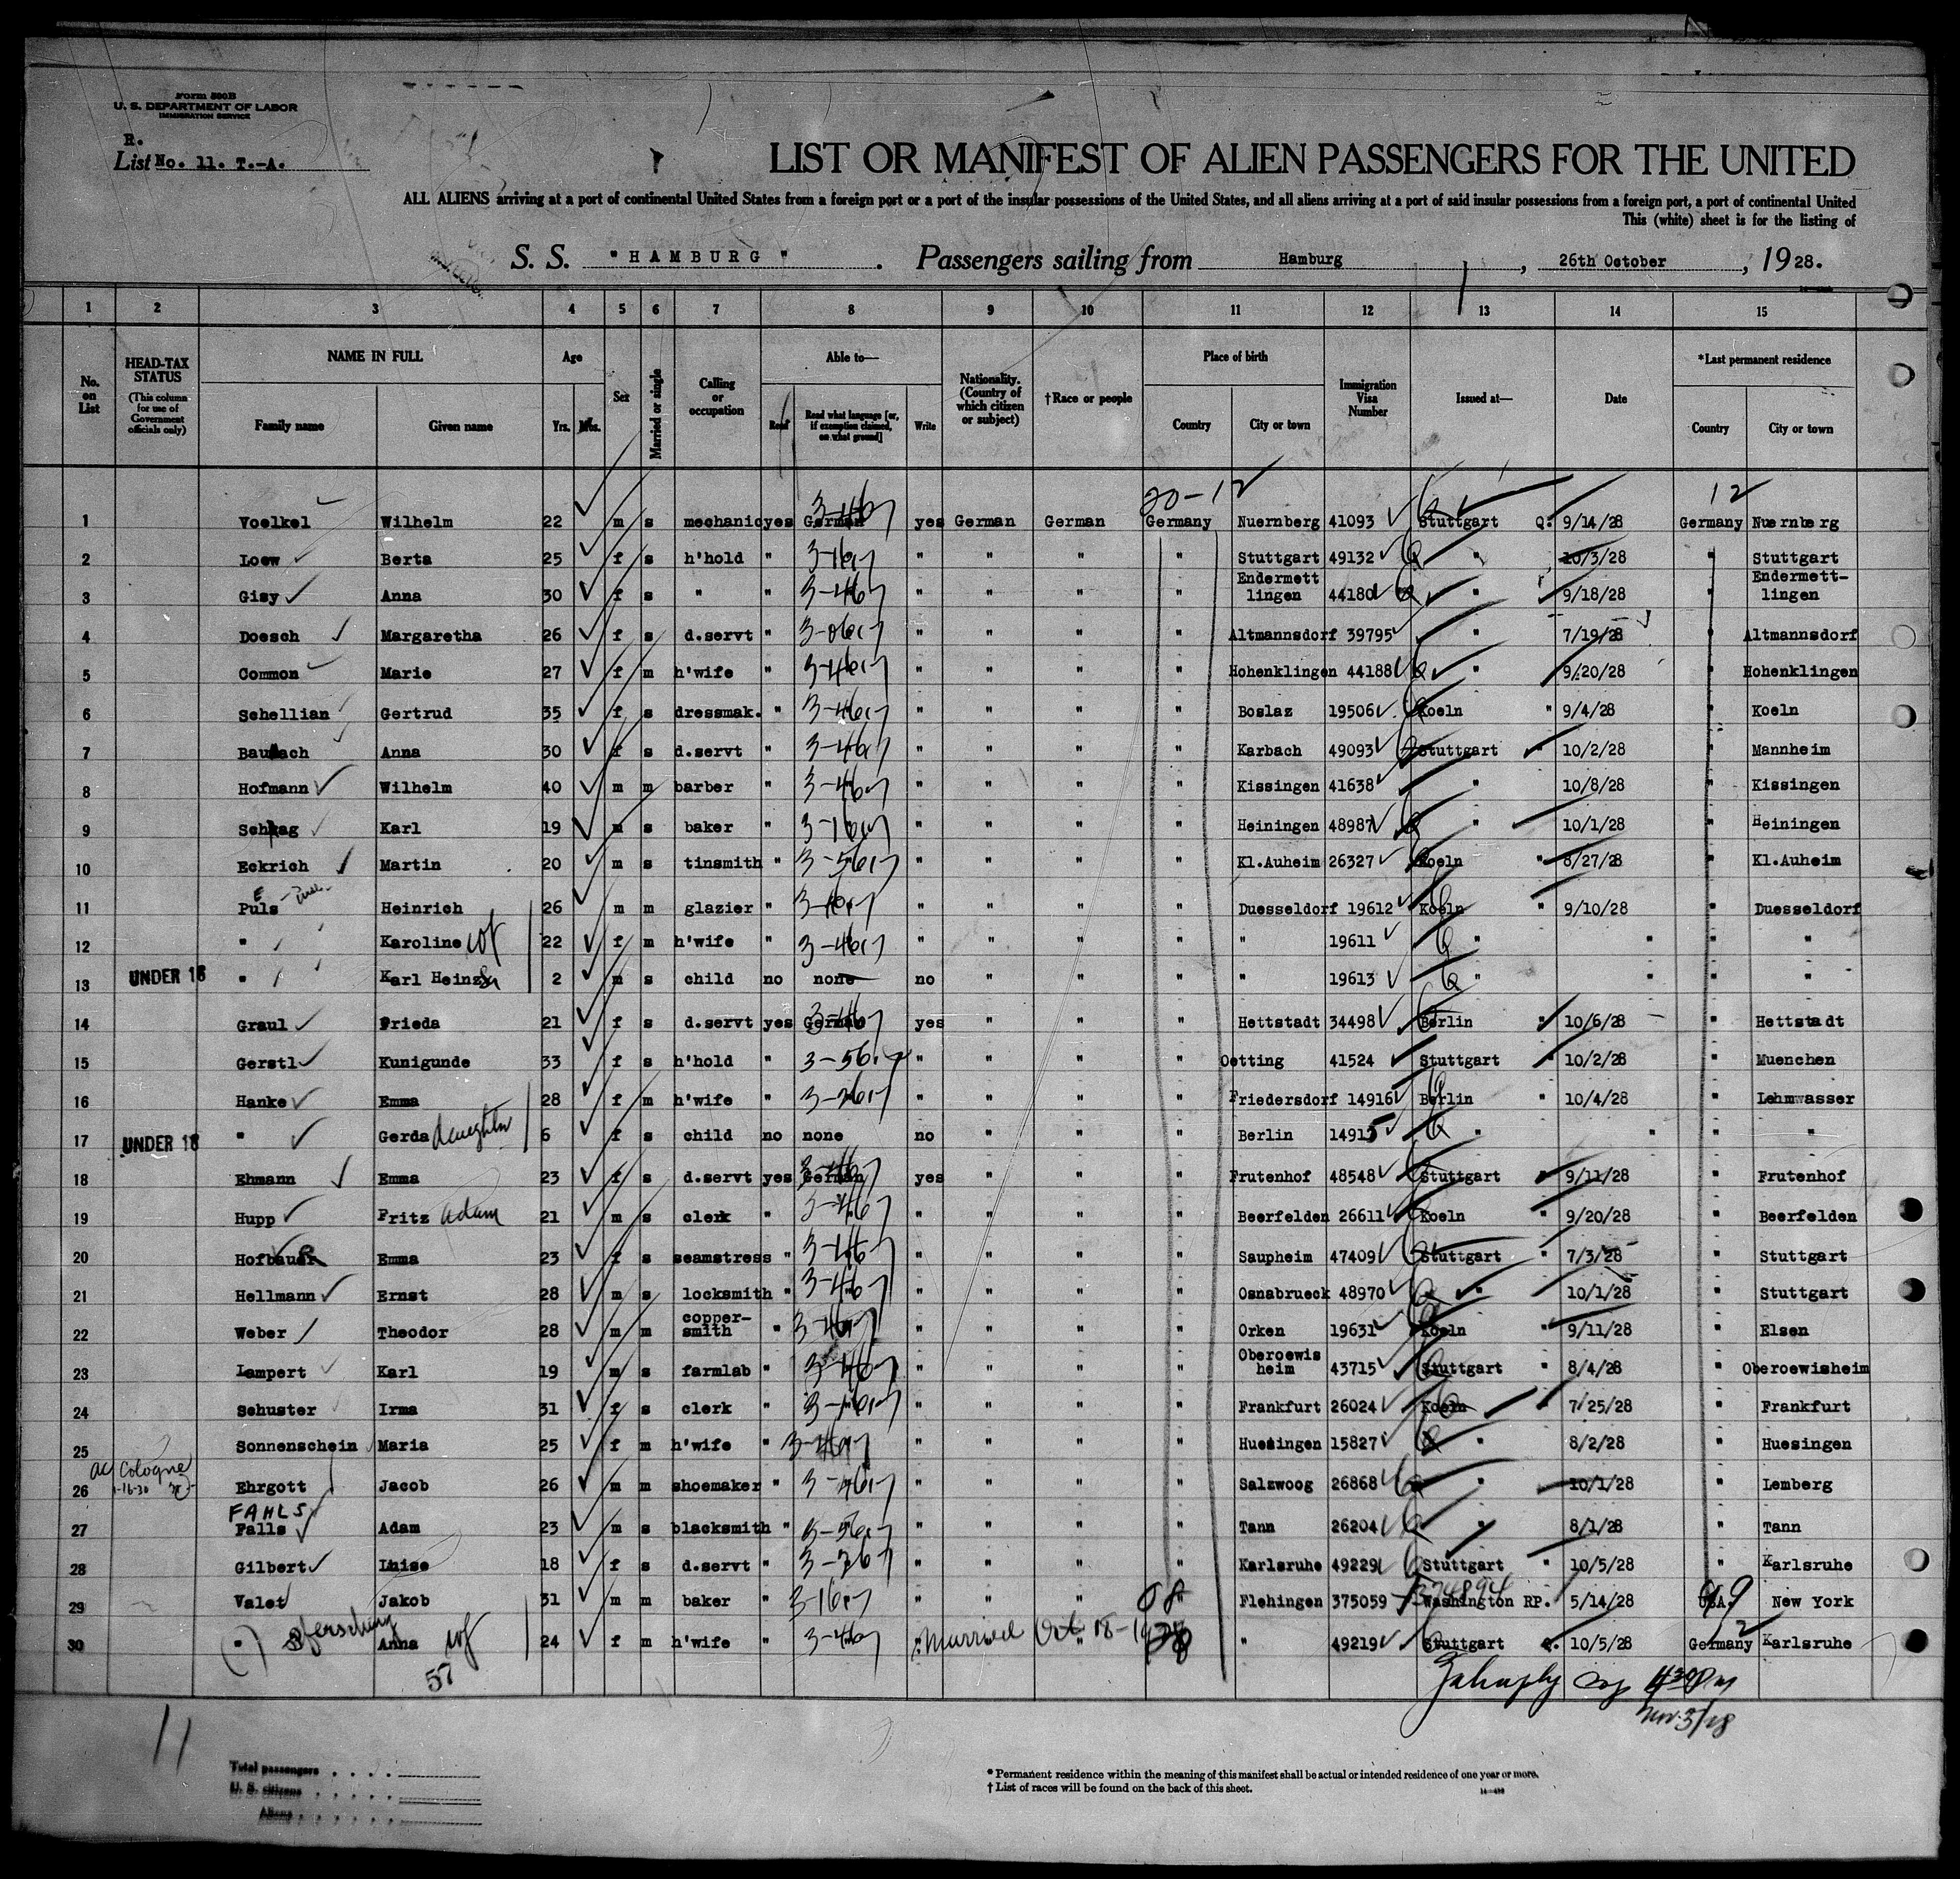 Form 500B
U. S. DEPARTMENT OF LABOR
IMMIGRATION SERVICE
R.
List No. 11. T.-A.
LIST OR MANIFEST OF ALIEN PASSENGERS FOR THE UNITED
ALL ALIENS arriving at a port of continental United States from a foreign port or a port of the insular possessions of the United States, and all aliens arriving at a port of said insular possessions from a foreign port, a port of continental United
This (white) sheet is for the listing of
S. S. "HAMBURG". Passengers sailing from Hamburg, 26th October, 1928.
1 2 3 4 5 6 7 8 9 10 11 12 13 14 15
No. on List
HEAD-TAX STATUS
(This column for use of Government officials only)
NAME IN FULL
Family name Given name
Age
Yrs. Mos.
Sex
Married or single
Calling or occupation
Able to—
Read Read what language [or, if exemption claimed, on what ground] Write
Nationality. (Country of which citizen or subject)
†Race or people
Place of birth
Country City or town
Immigration Visa Number
Issued at—
Date
*Last permanent residence
Country City or town
20-12 12
1 Voelkel Wilhelm 22 m s mechanic yes German yes German German Germany Nuernberg 41093 Stuttgart Q. 9/14/28 Germany Nuernberg
2 Loew Berta 25 f s h'hold " " " " " Stuttgart 49132 " 10/3/28 " Stuttgart
3 Gisy Anna 30 f s " " " " " " Endermettlingen 44180 " 9/18/28 " Endermett-lingen
4 Doesch Margaretha 26 f s d.servt " " " " " Altmannsdorf 39795 " 7/19/28 " Altmannsdorf
5 Common Marie 27 f m h'wife " " " " " Hohenklingen 44188 " 9/20/28 " Hohenklingen
6 Schellian Gertrud 35 f s dressmak. " " " " " Boslaz 19506 Koeln " 9/4/28 " Koeln
7 Anna 30 f s d.servt " " " " " Karbach 49093 Stuttgart " 10/2/28 " Mannheim
8 Hofmann Wilhelm 40 m m barber " " " " " Kissingen 41638 " 10/8/28 " Kissingen
9 Karl 19 m s baker " " " " " Heiningen 48987 " 10/1/28 " Heiningen
10 Eckrich Martin 20 m s tinsmith " " " " " Kl.Auheim 26327 Koeln " 8/27/28 " Kl.Auheim
11 Puls Heinrich 26 m m glazier " " " " " Duesseldorf 19612 Koeln " 9/10/28 " Duesseldorf
12 " Karoline wf 22 f m h'wife " " " " " " 19611 " " " "
13 UNDER 16 " Karl Heinz 2 m s child no none no " " " " 19613 " " " "
14 Graul Frieda 21 f s d.servt yes German yes " " " Hettstadt 34498 Berlin " 10/6/28 " Hettstadt
15 Gerstl Kunigunde 33 f s h'hold " " " " " Oetting 41524 Stuttgart " 10/2/28 " Muenchen
16 Hanke Emma 28 f m h'wife " " " " " Friedersdorf 14916 Berlin " 10/4/28 " Lehmwasser
17 UNDER 16 " Gerda daughter 6 f s child no none no " " " Berlin 14915 " " " "
18 Ehmann Emma 23 f s d.servt yes German yes " " " Frutenhof 48548 Stuttgart " 9/11/28 " Frutenhof
19 Hupp Fritz Adam 21 m s clerk " " " " " Beerfelden 26611 Koeln " 9/20/28 " Beerfelden
20 Hofbauer Emma 23 f s seamstress " " " " " Saupheim 47409 Stuttgart " 7/3/28 " Stuttgart
21 Hellmann Ernst 28 m s locksmith " " " " " Osnabrueck 48970 " 10/1/28 " Stuttgart
22 Weber Theodor 28 m m copper-smith " " " " " Orken 19631 Koeln " 9/11/28 " Elsen
23 Lampert Karl 19 m s farmlab " " " " " Oberoewisheim 43715 Stuttgart " 8/4/28 " Oberoewisheim
24 Schuster Irma 31 f s clerk " " " " " Frankfurt 26024 Koeln 7/25/28 " Frankfurt
25 Sonnenschein Maria 25 f m h'wife " " " " " Huesingen 15827 " 8/2/28 " Huesingen
Cologne
26 Ehrgott Jacob 26 m m shoemaker " " " " " Salzwoog 26868 " 10/1/28 " Lemberg
FAHLS
27 Falls Adam 23 m s blacksmith " " " " " Tann 26204 " 8/1/28 " Tann
28 Gilbert Luise 18 f s d.servt " " " " " Karlsruhe 49229 Stuttgart " 10/5/28 " Karlsruhe
374894
29 Valet Jakob 31 m m baker " " " " " Flehingen 375059 Washington RP. 5/14/28 USA. New York
30 " Anna wf 24 f m h'wife " " Married Oct 18-1928 " 49219 Stuttgart Q. 10/5/28 Germany Karlsruhe
57
4 30 Pm
Nov. 3/28
11
Total passengers
U. S. citizens
Aliens
* Permanent residence within the meaning of this manifest shall be actual or intended residence of one year or more.
† List of races will be found on the back of this sheet.